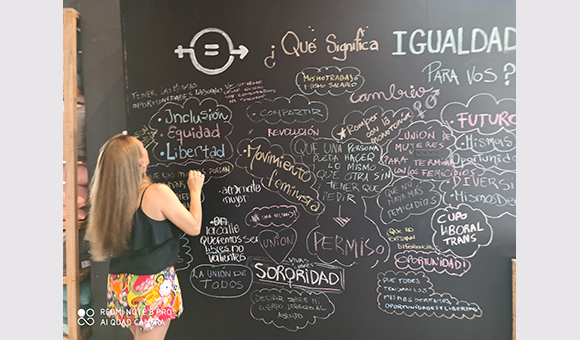 ¿Qué Significa IGUALDAD
PARA VOS?
MISMO TRABAJO
MISMO SALARIO
CAMBIAR
TENER LAS MISMAS
OPORTUNIDADES LABORALES
• Inclusión
• Equidad
• Libertad
• COMPARTIR
REVOLUCIÓN
• Movimiento
feminista
QUE UNA PERSONA
PUEDA HACER
LO MISMO
QUE OTRA SIN
TENER QUE
PEDIR
PERMISO
Romper
CON LA
UNIÓN DE
MUJERES
PARA TERMINAR
CON LOS FEMICIDIOS
QUE NO HAYA
MÁS
FEMICIDIOS
FUTURO
• Mismas
Oportunida
DIVERSI
• MISMOS DER
CUPO
LABORAL
TRANS
QUE NO
EXISTAN
DIFERENCIAS
OPORTUNIDAD!
QUE TODES
TENGAN LOS
MISMOS DERECHOS,
OPORTUNIDADES Y LIBERTAD
mujer
EN
la calle
QUEREMOS SER
libres no
valientes
UNIÓN
LA UNIÓN DE
TODOS
SORORIDAD
DECIDIR SOBRE MI
CUERPO DERECHO AL
ABORTO
REDMI NOTE 8 PRO
AI QUAD CAMERA